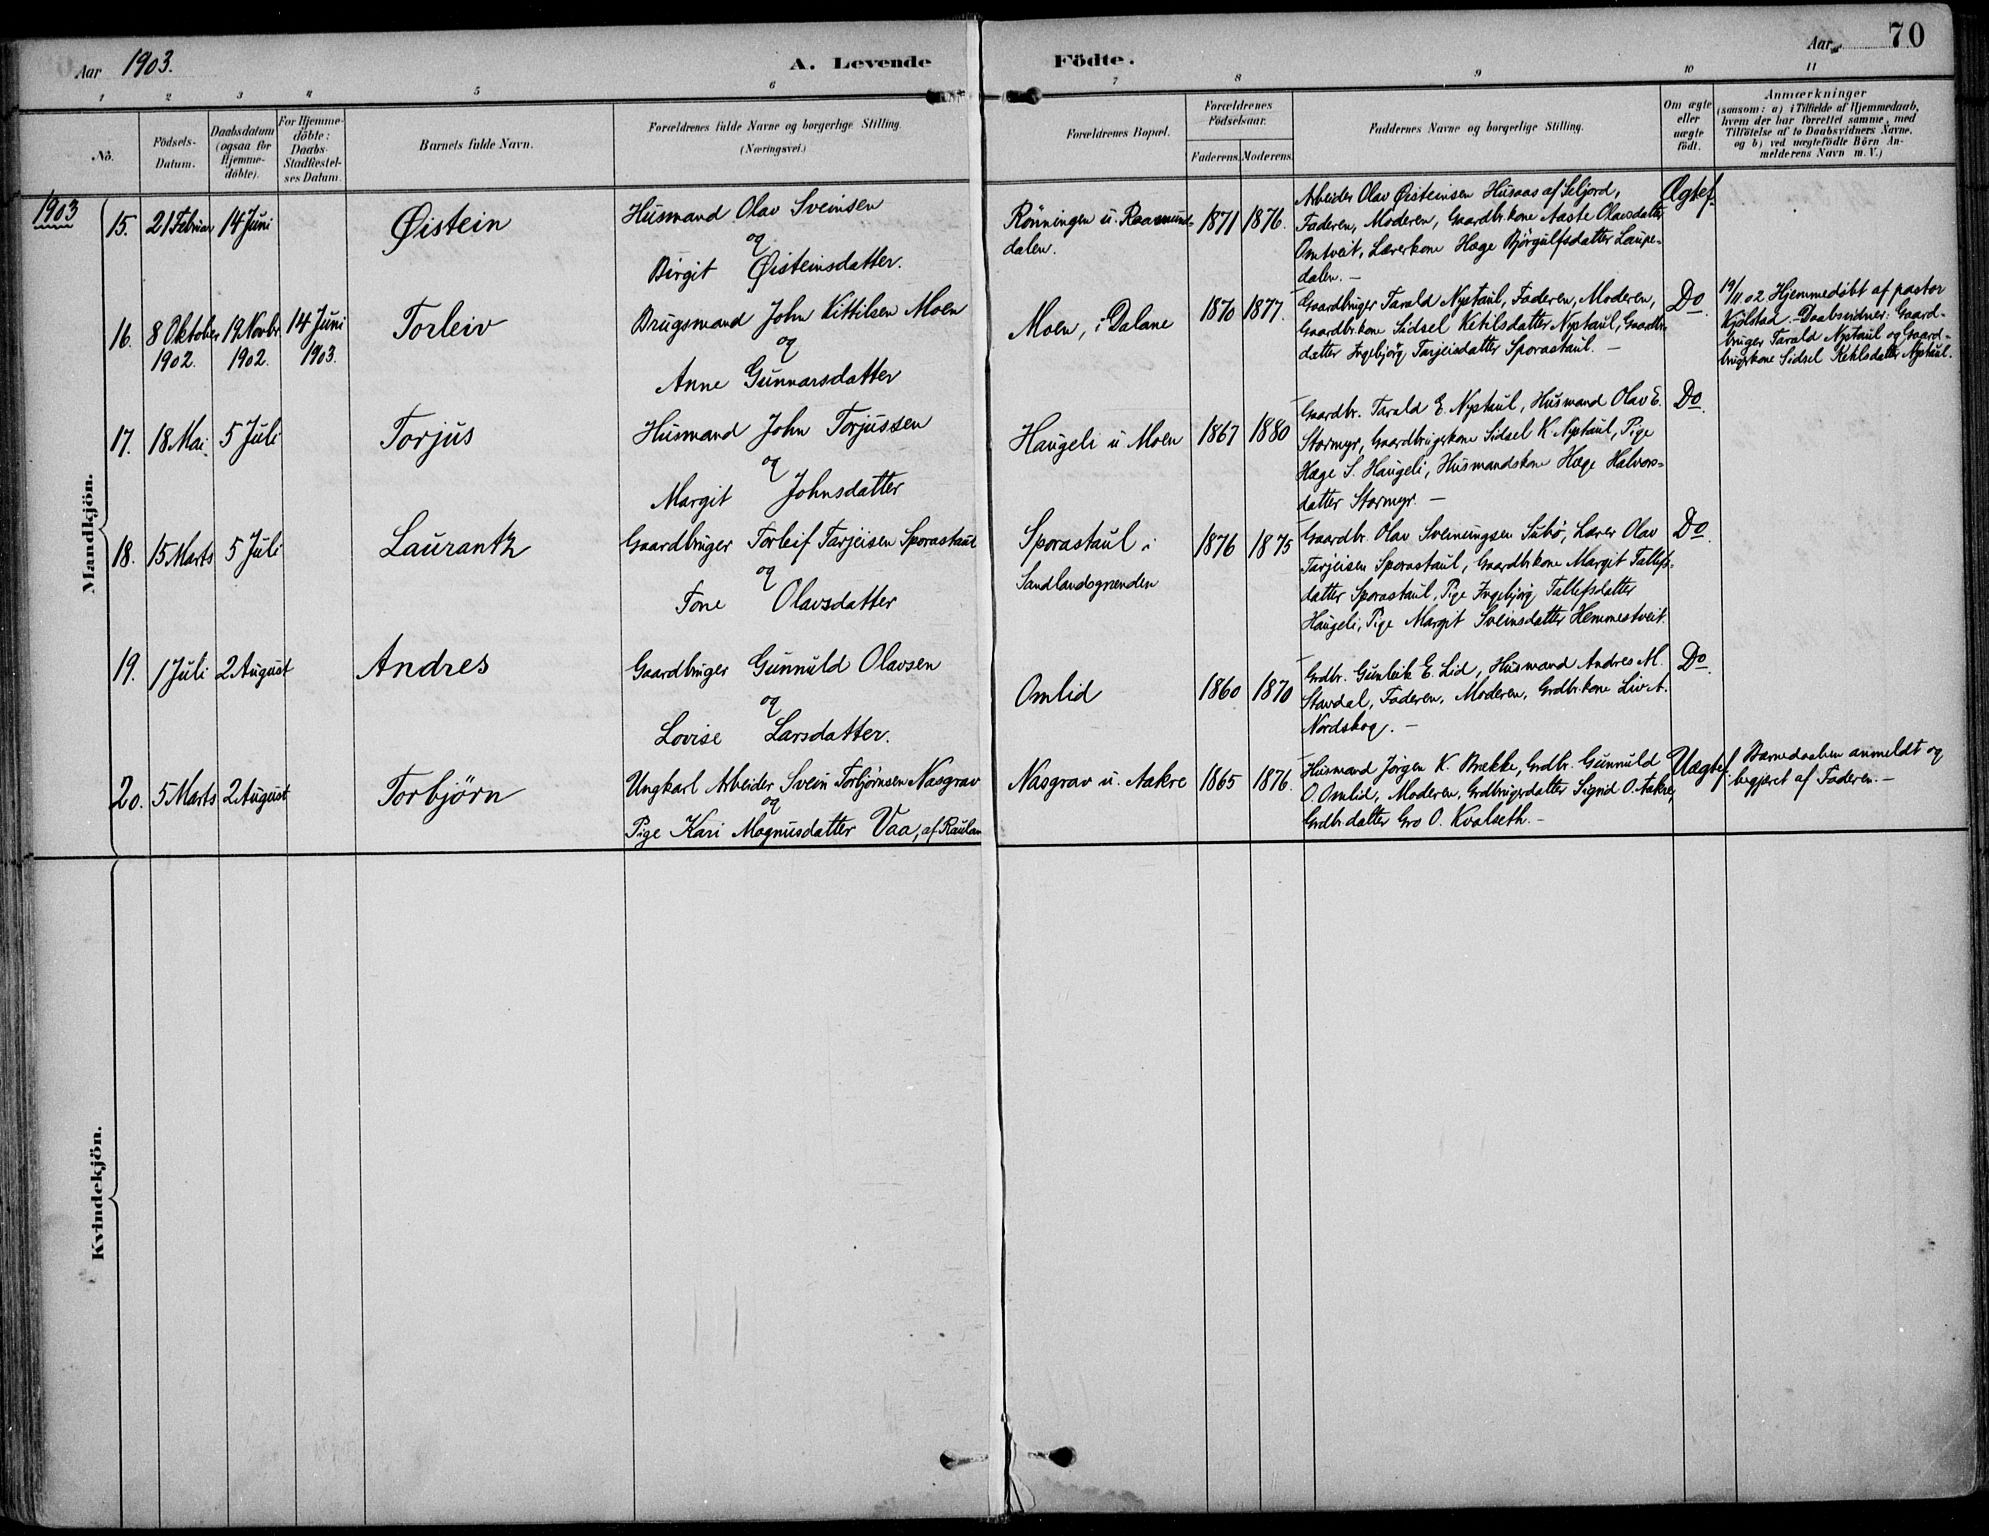 70
Aar 1903.
A. Levende
Födte.
Aar
1 2 3 4 5 6 7 8 9 10 11
No.
Födsels-
Datum.
Daabsdatum
(ogsaa for
Hjemme-
döbte).
For Hjemme-
döbte:
Daabs-
Stadfæstel-
ses Datum.
Barnets fulde Navn.
Forældrenes fulde Navne og borgerlige Stilling.
(Næringsvei.)
Forældrenes Bopæl.
Forældrenes
Födselsaar.
Faderens.
Moderens.
Faddernes Navne og borgerlige Stilling.
Om ægte
eller
uægte
födt.
Anmærkninger
(saasom: a) i Tilfælde af Hjemmedaab,
hvem der har forrettet samme, med
Tilföielse af to Daabsvidners Navne,
og b) ved uægtefödte Börn An-
melderens Navn m. V.)
Mandkjön.
1903
15. 21 Februar 14 Juni
Øistein
Husmand Olav Sveinsen
og
Birgit Øisteinsdatter.
Rönningen u. Raamunds-
dalen.
1871 1876.
Arbeider Olav Øisteinsen Husaas af Seljord,
Faderen, Moderen, Gaardbr.kone Aaste Olavsdatter
Omtveit, Lærerkone Hæge Bjørgulfsdatter Laupe-
dalen. —
Ægtef.
16. 8 Oktober 19 Novbr. 14 Juni
1902. 1902. 1903.
Torleiv
Brugsmand John Kittilsen Moen
og
Anne Gunnarsdatter
Moen, i Dalane
1870 1877.
Gaardbruger Tarald Nystaul, Faderen, Moderen,
Gaardbr.kone Sidsel Ketilsdatter Nystaul, Gaardbr.
datter Ingebjörg Tarjeisdatter Sporastaul. —
Do.
19/11 02 Hjemmedöbt af pastor
Kjölstad. Daabsvidner: Gaard-
bruger Tarald Nystaul og Gaard-
brugerkone Sidsel Ketilsdatter Nystaul.
17. 18 Mai. 5 Juli
Torjus
Husmand John Torjussen
og
Margit Johnsdatter
Haugeli u Moen
1867 1880
Gaardbr. Tarald E. Nystaul, Husmand Olav E.
Stormyr, Gaardbrugerkone Sidsel K. Nystaul, Pige
Hæge S. Haugeli, Husmandskone Hæge Halvors-
datter Stormyr. —
Do.
18. 15 Marts 5 Juli
Laurantz
Gaardbruger Torleif Tarjeisen Sporastaul
og
Tone Olavsdatter
Sporastaul i
Sandlandsgrænden
1876 1875
Gaardbr. Olav Sveinungsen Subø, Lærer Olav
Tarjeisen Sporastaul, Gaardbr.kone Margit Tallefs-
datter Sporastaul, Pige Ingebjörg Tallefsdatter
Haugeli, Pige Margit Sveinsdatter Hemmestveit.
Do.
19. 1 Juli 2 August
Andres
Gaardbruger Gunnuld Olavsen
og
Lovise Larsdatter.
Omlid
1860 1870
Grdbr. Gunleik E. Lid, Husmand Andres M.
Stavdal, Faderen, Moderen, Grdbr.kone Liv A.
Nordskog. —
Do.
20. 5 Marts 2 August
Torbjørn
Ungkarl Arbeider Svein Torbjørnsen Nasgrav
og
Pige Kari Magnusdatter Vaa, af Rauland
Nasgrav u. Aakre
1865 1876.
Husmand Jørgen K. Brække, Grdbr. Gunnuld
O. Omlid, Moderen, Grdbrugerdatter Sigrid O. Aakre,
Grdbr.datter Gro O. Kvalseth. —
Uægtef.
Barnedaaben anmeldt og
begjært af Faderen. —
Kvindekjön.